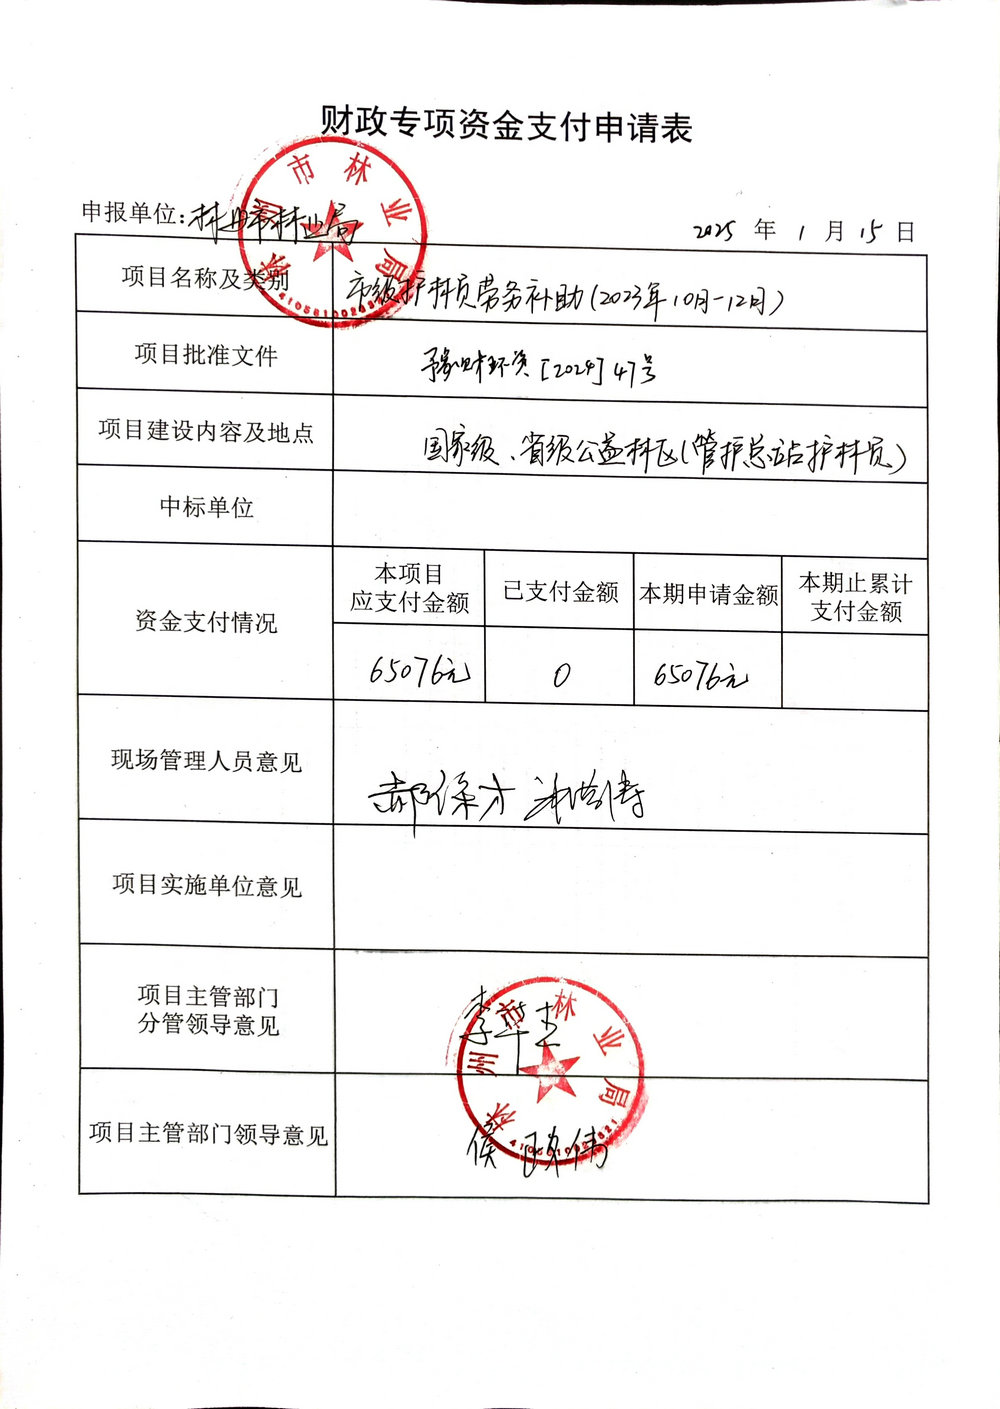 财政专项资金支付申请表
申报单位:林州市林业局
2025 年 1 月 15 日
项目名称及类别
市级护林员劳务补助(2023年10月-12月)
项目批准文件
豫财环资[2024]47号
项目建设内容及地点
国家级、省级公益林区(管护总站护林员)
中标单位
资金支付情况
本项目
应支付金额
已支付金额
本期申请金额
本期止累计
支付金额
65076元
0
65076元
现场管理人员意见
郝保才
项目实施单位意见
项目主管部门
分管领导意见
项目主管部门领导意见
林州市林业局
林州市林业局